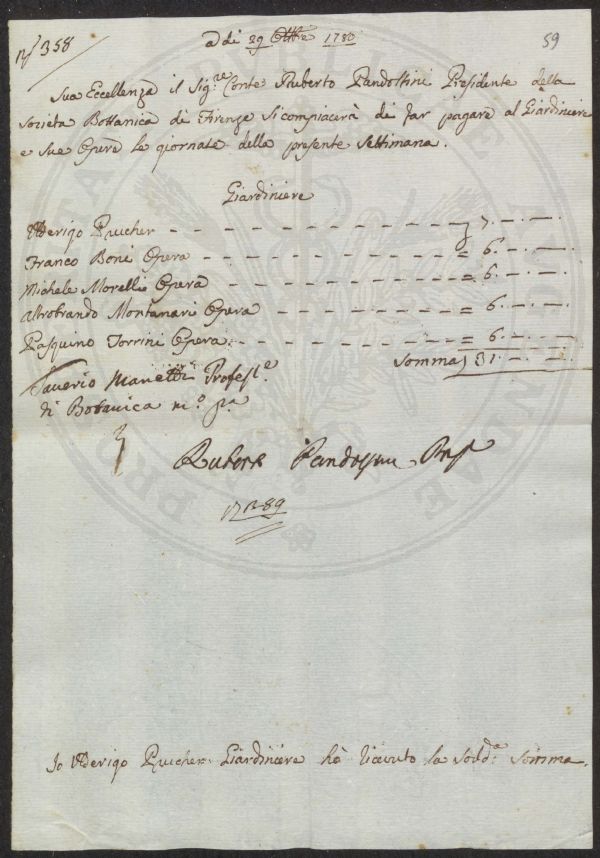 N° 358
59
a dì 29 Ottre 1780
Sua Eccellenza il Sigre Conte Ruberto Pandolfini Presidente della
Società Bottanica di Firenze si compiacerà di far pagare al Giardiniere
e sue Opere le giornate della presente Settimana.
Giardiniere
Ulderigo Prucher - - - - - - - - - - - - - 7. - . -
Franco Boni Opera - - - - - - - - - - - = 6. - . -
Michele Morelli Opera - - - - - - - - - = 6. - . -
Altobrando Montanari Opera - - - - - - - = 6. - . -
Pasquino Torrini Opera - - - - - - - - - = 6. - . -
Somma 31. - . -
Saverio Manetti Profess.e
di Botanica m.o p.a
Ruberto Pandolfini Pres
Io Ulderigo Prucher Giardiniere hò ricevuto la sodd.a Somma.
PRO